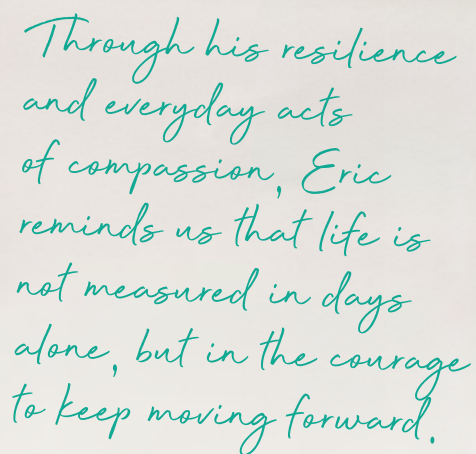 Through his resilience
and everyday acts
of compassion, Eric
reminds us that life is
not measured in days
alone, but in the courage
to keep moving forward.